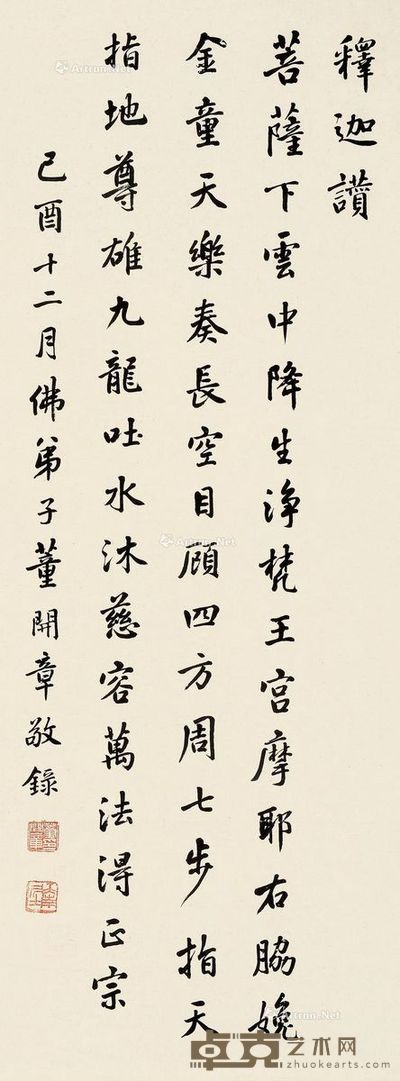 釋迦讚
菩薩下雲中降生淨梵王宮摩耶右脇娩
金童天樂奏長空目顧四方周七步指天
指地尊雄九龍吐水沐慈容萬法得正宗
己酉十二月佛弟子董開章敬錄
Artron.Net
Artron.Net
Artron.Net
Artron.Net
卓克艺术网
zhuokearts.com